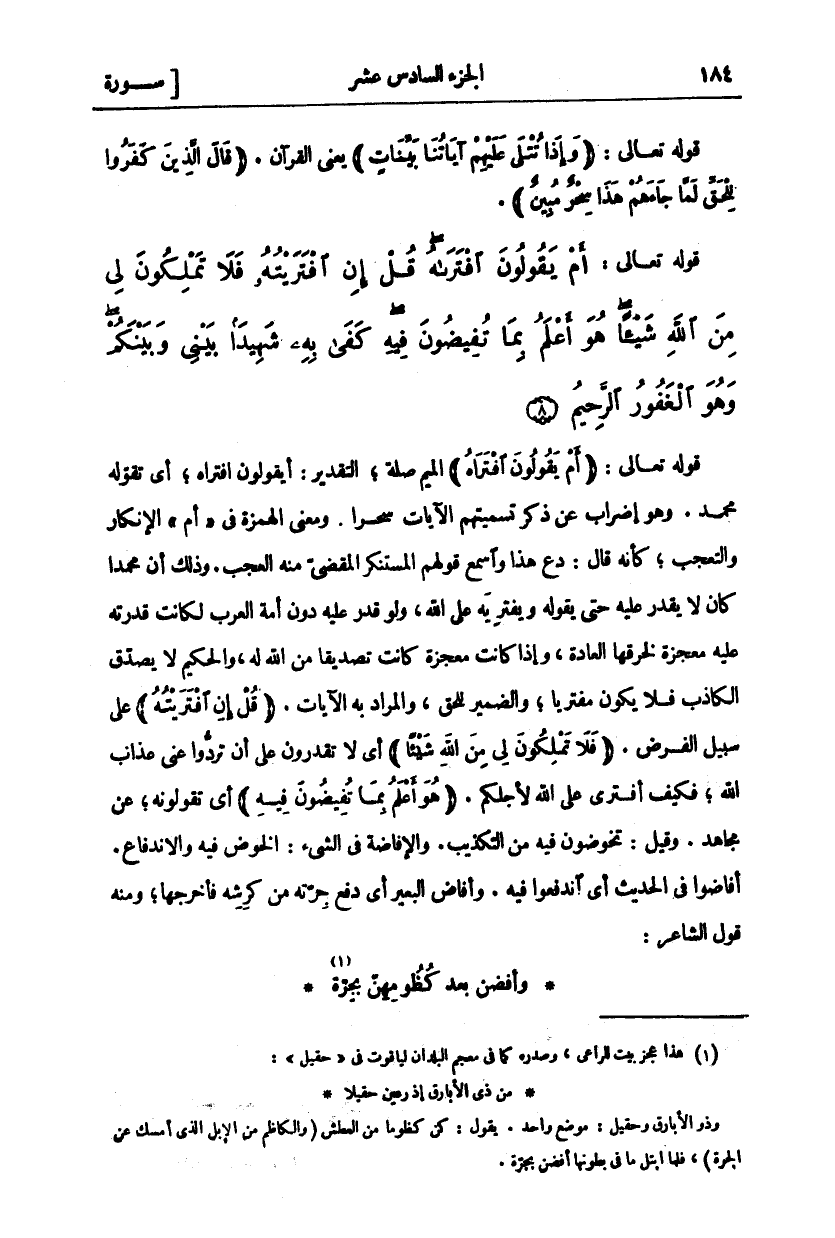 ١٨٤ الجزء السادس عشر [ ســورة
قوله تعـالى : ﴿ وَإِذَا تُتْلَى عَلَيْهِمْ آيَاتُنَا بَيِّنَاتٍ ﴾ يعنى القرآن . ﴿ قَالَ الَّذِينَ كَفَرُوا
لِلْحَقِّ لَمَّا جَاءَهُمْ هَذَا سِحْرٌ مُبِينٌ ﴾ .
قوله تعـالى : أَمْ يَقُولُونَ ٱفْتَرَىٰهُ ۖ قُلْ إِنِ ٱفْتَرَيْتُهُۥ فَلَا تَمْلِكُونَ لِى
مِنَ ٱللَّهِ شَيْـًٔا ۖ هُوَ أَعْلَمُ بِمَا تُفِيضُونَ فِيهِ ۖ كَفَىٰ بِهِۦ شَهِيدًۢا بَيْنِى وَبَيْنَكُمْ ۖ
وَهُوَ ٱلْغَفُورُ ٱلرَّحِيمُ ۝٨
قوله تعـالى : ﴿ أَمْ يَقُولُونَ ٱفْتَرَاهُ ﴾ الميم صلة ؛ التقدير : أيقولون افتراه ؛ أى تقوّله
محمـد . وهو إضراب عن ذكر تسميتهم الآيات سحـرا . ومعنى الهمزة فى « أم » الإنكار
والتعجب ؛ كأنه قال : دع هذا وٱسمع قولهم المستنكر المقضىّ منه العجب . وذلك أن محمدا
كان لا يقدر عليه حتى يقوله ويفتريَه على الله ، ولو قدر عليه دون أمة العرب لكانت قدرته
عليه معجزة لخرقها العادة ، وإذا كانت معجزة كانت تصديقا من الله له ، والحكيم لا يصدّق
الكاذب فـلا يكون مفتريا ؛ والضمير للحق ، والمراد به الآيات . ﴿ قُلْ إِنِ ٱفْتَرَيْتُهُ ﴾ على
سبيل الفـرض . ﴿ فَلَا تَمْلِكُونَ لِى مِنَ اللَّهِ شَيْئًا ﴾ أى لا تقدرون على أن تردّوا عنى عذاب
الله ؛ فكيف أفـترى على الله لأجلكم . ﴿ هُوَ أَعْلَمُ بِمَـا تُفِيضُونَ فِيـهِ ﴾ أى تقولونه ؛ عن
مجاهد . وقيل : تخوضون فيه من التكذيب . والإفاضة فى الشىء : الخوض فيه والاندفاع .
أفاضوا فى الحديث أى ٱندفعوا فيه . وأفاض البعير أى دفع جِرّته من كَرِشِه فأخرجها ؛ ومنه
قول الشاعر :
* وأفضن بعد كُظُومِهِنّ بِجِرّة (١) *
(١) هذا عجز بيت للراعى ، وصدره كما فى معجم البلدان لياقوت فى « حقيل » :
* من ذى الأبارق إذ رعين حقيلا *
وذو الأبارق وحقيل : موضع واحد . يقول : كن كظوما من العطش ( والكاظم من الإبل الذى أمسك عن
الجرة ) ، فلما ابتل ما فى بطونها أفضن بجرّة .